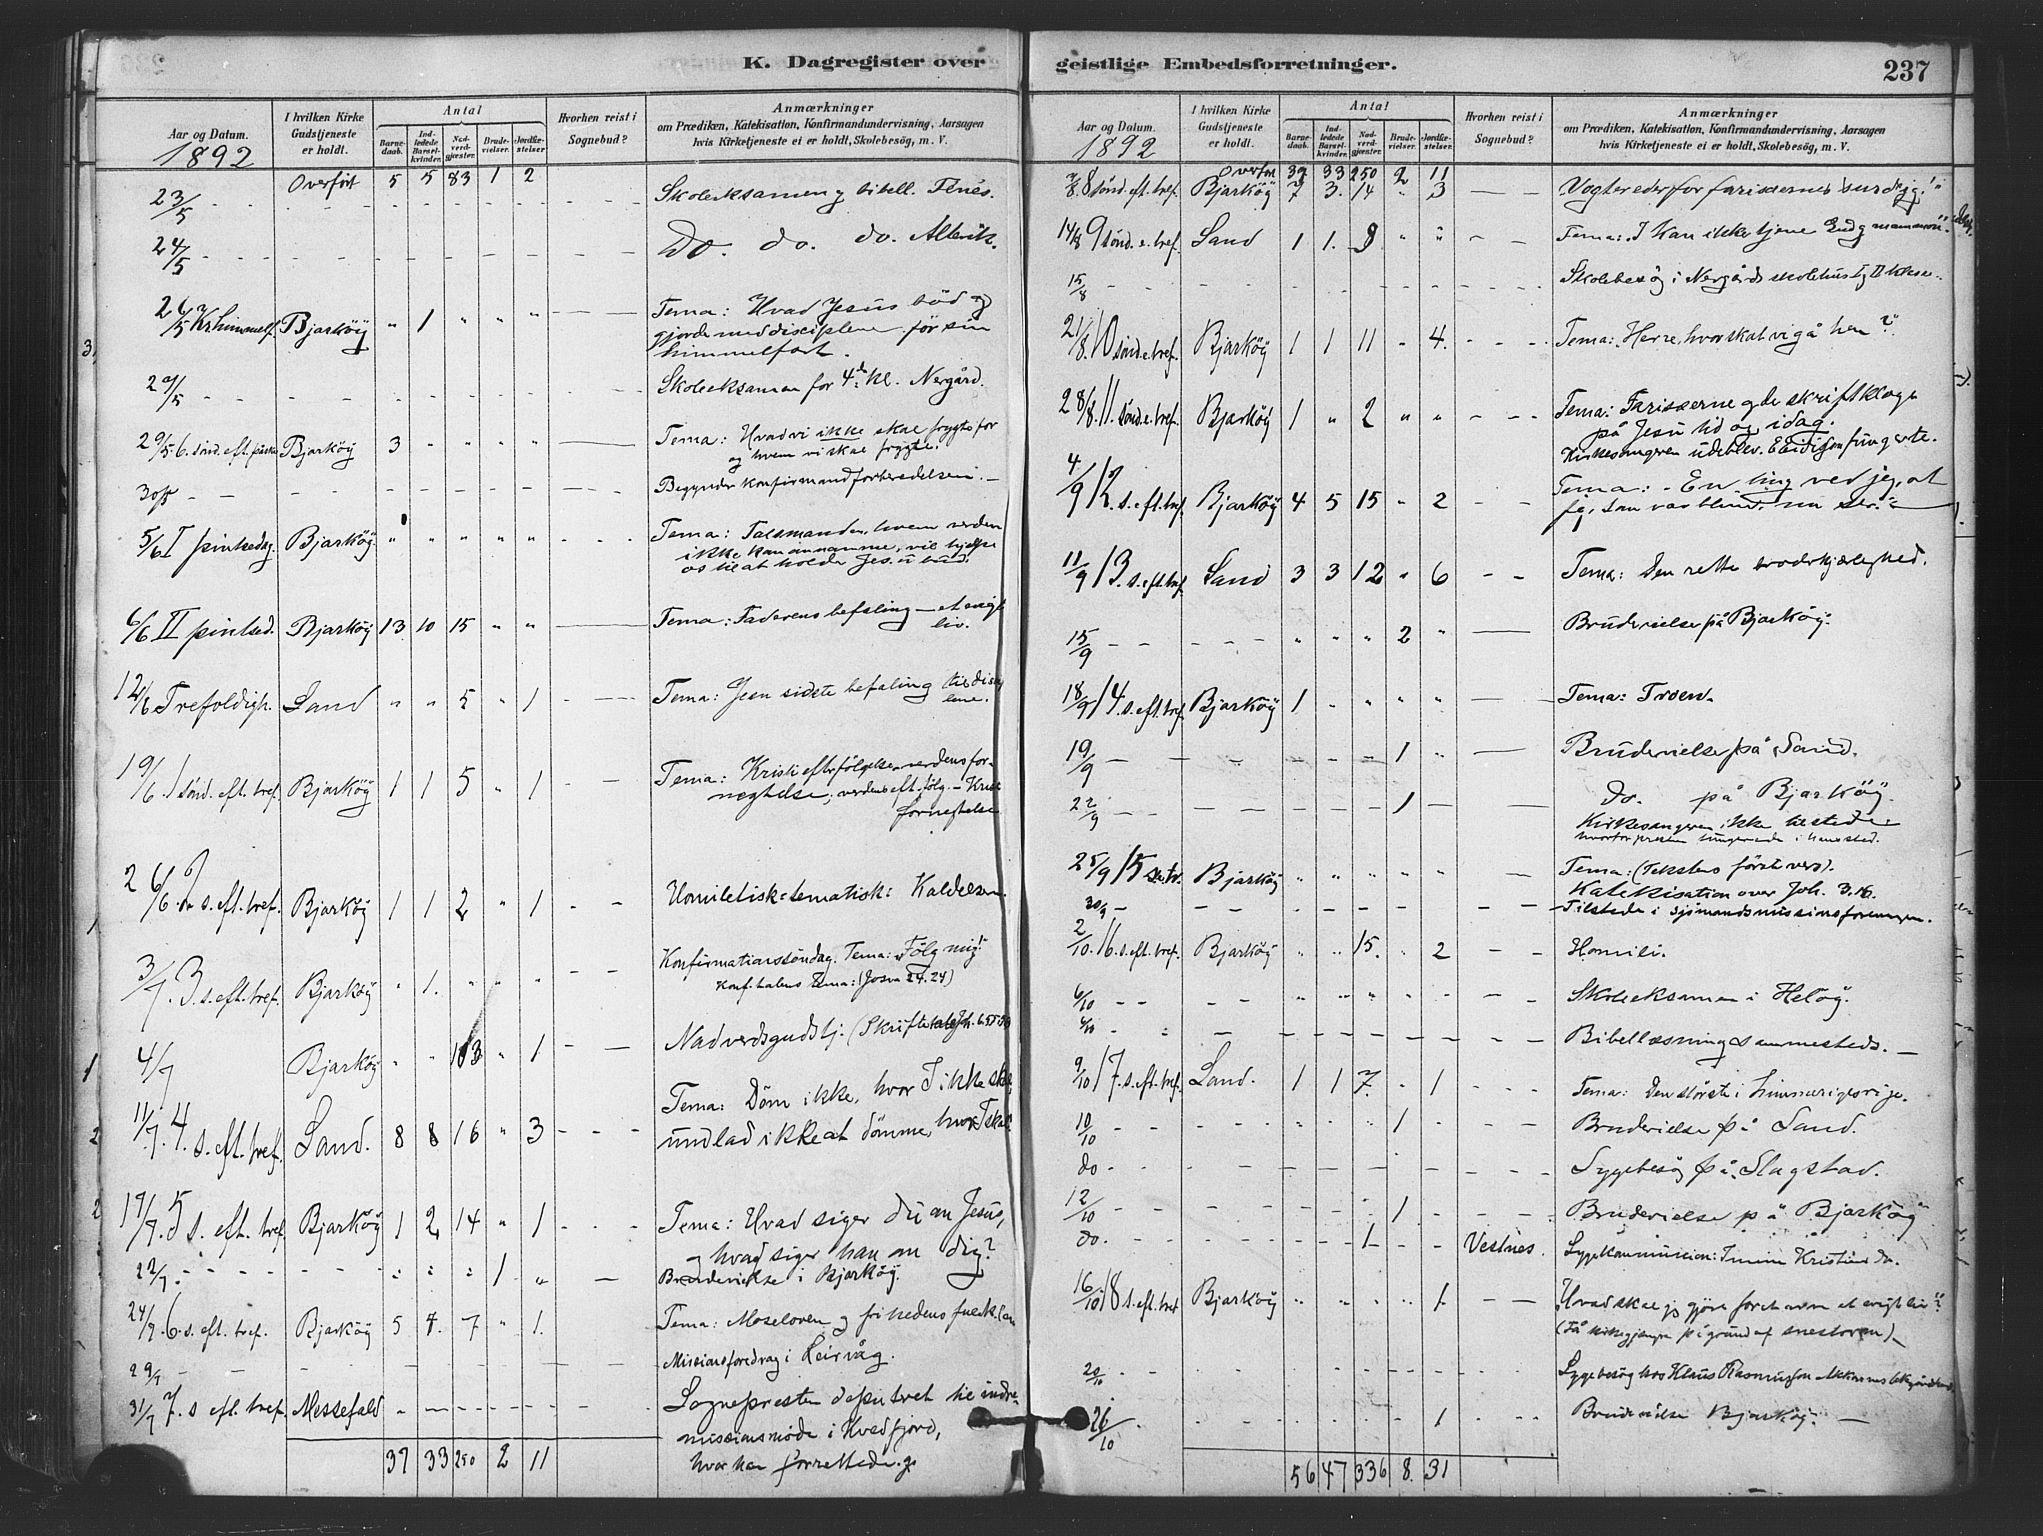 K. Dagregister over
Aar og Datum. 1892
I hvilken Kirke Gudstjeneste er holdt.
Antal
Barnedaab.
Indledede Barselkvinder.
Nadverdgjæster.
Brudevielser.
Jordfæstelser
Hvorhen reist i Sognebud?
Anmærkninger
om Prædiken, Katekisation, Konfirmandundervisning, Aarsagen
hvis Kirketjeneste ei er holdt, Skolebesøg, m. V.
Overført 5 5 83 1 2
23/5 Skoleeksamen
24/5 Do. do. do.
26/5 Kr. himmelf. Bjarköy " 1 " " " Tema: Hvad Jesus bød og
gjorde med disciplene før sin
himmelfart.
Skoleeksamen for 4de kl. Nergård.
29/5 6. sønd. eft. påske Bjarköy 3 " " " " Tema: Hvad vi ikke skal frygte for
og hvem vi skal frygte.
30/5 Begynder konfirmandforberedelsen. –
5/6 I pintsedag. Bjarköy " " " " " Tema: Talsmanden, hvem verden
ikke kan annamme, vil hjelpe
os til at holde Jesu bud.
6/6 II pintsed. Bjarköy 13 10 15 " " Tema: Faderens befaling – et evigt
liv.
12/6 Trefoldigh. Sand " " 5 " 1 Tema: Jesu sidste befaling til
19/6 1 sønd. eft. tref. Bjarköy 1 1 5 " 1 Tema: Kristi efterfølgelse – verdens for-
negtelse; verdens eft.følg. – Kristi
fornegtelse
26/6 s. eft. tref. Bjarköy 1 1 2 " 1 Homiletisk-tematisk: Kaldelsen.
3/7. 3. s. eft. tref. Bjarköy " 1. " " " Konfirmationssøndag. Tema: "Følg mig!"
Konf.talens tema: (Josva 24.24)
4/7 Bjarköy " " 103 " 1 Nadverdsgudstj.
11/7. 4. s. eft. tref. Sand. 8 8 16 " 3 Tema: Døm ikke, hvor I ikke skal,
undlad ikke at dømme, hvor I skal
5 s. eft. tref. Bjarköy 1 2 14 " 1 Tema: Hvad siger du om Jesus,
og hvad siger han om dig?
22/7. " " " 1 " Brudevielse i Bjarköy.
24/7. 6. s. eft. tref. Bjarköy 5 7. 7 " 1. Tema: Moseloven og frihedens
29/7 Missionsforedrag i Leirvåg.
31/7 7. s eft. tref. Messefald Sognepresten deputeret til indre-
missionsmøde i Kvedfjord,
hvor han forrettede.
37 33 250 2 11
geistlige Embedsforretninger.
237
Aar og Datum. 1892
I hvilken Kirke Gudstjeneste er holdt.
Antal
Barnedaab.
Indledede Barselkvinder.
Nadverdgjæster.
Brudevielser.
Jordfæstelser.
Hvorhen reist i Sognebud?
Anmærkninger
om Prædiken, Katekisation, Konfirmandundervisning, Aarsagen
hvis Kirketjeneste ei er holdt, Skolebesøg, m. V.
Overført 37 33 250 2 11
7/8 8 sønd. eft. tref. Bjarköy 7 3. 14 " 3 Vogter eder for farisæernes surdejg!"
14/8 9 sønd. e. tref. Sand 1 1. 9 " " Tema: I kan ikke tjene Gud og mammon".
15/8 Skolebesøg i Nergårds skolehus
21/8. 10 sønd. e. tref. Bjarköy 1 1 11 " 4. Tema: "Herre, hvor skal vi gå hen?"
28/8. 11. sønd. e. tref. Bjarköy 1 " 2 " " Tema: Farisæerne og de skriftkloge
på Jesu tid og idag.
Kirkesangeren udeblev.
4/9 12. s. eft. tref. Bjarköy 4 5 15 " 2 Tema: – En ting ved jeg, at
jeg, som var blind, nu ser."
11/9 13. s. eft. tref. Sand 3 3 12 " 6 Tema: Den rette broderkjærlighed.
15/9 " " " 2 " Brudevielse på Bjarköy.
18/9 14. s. eft. tref. Bjarköy 1 " " " " Tema: Troen.
19/9 1 " Brudevielse på Sand.
22/9 1 Do. på Bjarköy.
Kirkesangeren ikke tilstede
25/9 15 Bjarköy " " " " " Tema: (Tekstens første vers).
Katekisation over Joh. 3.16.
30/9 – Tilstede i sjømandsmissionsforeningen.
2/10. 16. s. eft. tref. Bjarköy " " 15. " 2 Homili.
6/10 Skoleeksamen i Heløy.
6/10 Bibellæsning sammesteds. –
9/10 17. s. eft. tref. Sand. 1 1 7. " 1 Tema: Den største i himmeriges rige.
10/10 1 Brudevielse på Sand.
do Sygebesøg på Slagstad.
12/10 1 Brudevielse på Bjarköy
do. 1 Vestnes.
16/10 18 s. eft. tref Bjarköy " " " " 1 "Hvad skal jeg gjøre forat arve et evigt liv"?
(Få kirkegjængere på grund af snestorm) –
20/10 Sygebesøg hos Klaus Rasmussen
26/10 1 Brudevielse Bjarköy. –
56 47 336 8. 31